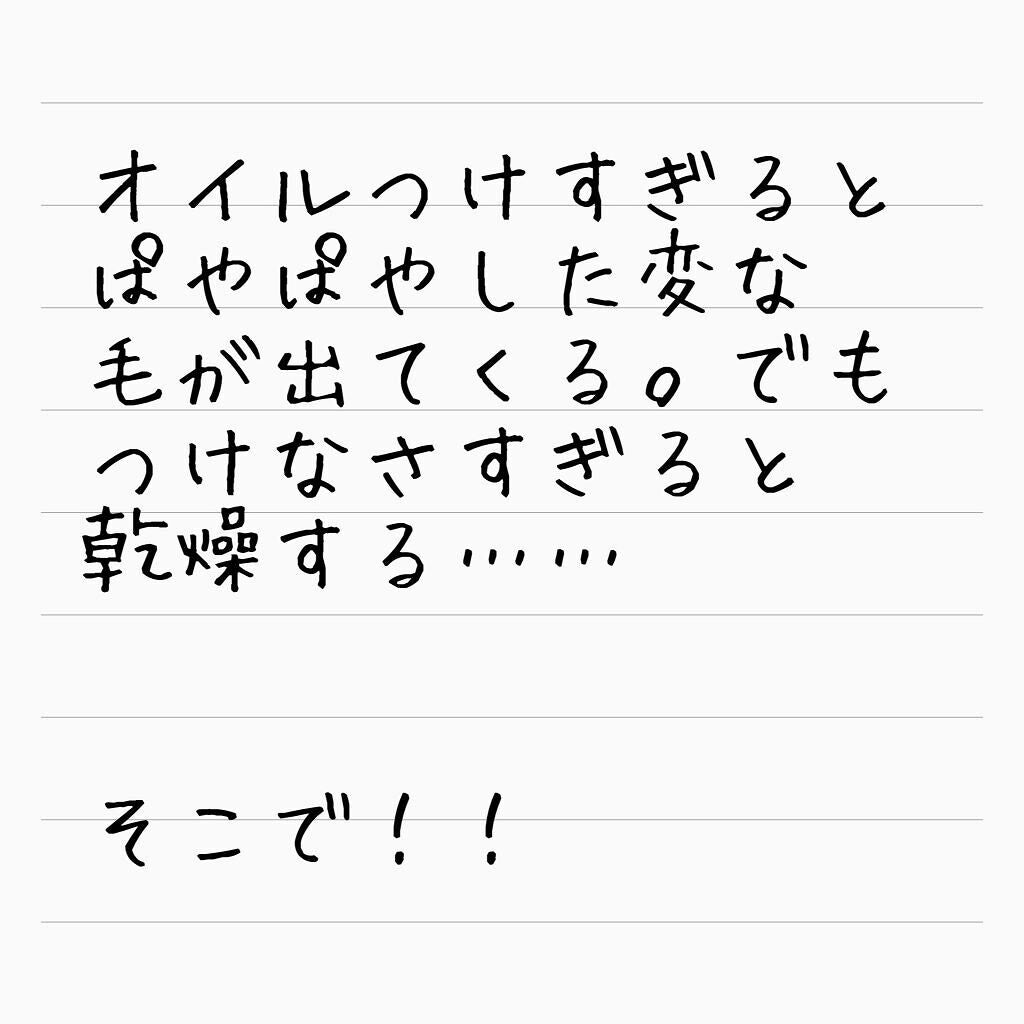 オイルつけすぎると
ぱやぱやした変な
毛が出てくる。でも
つけなさすぎると
乾燥する……
そこで！！